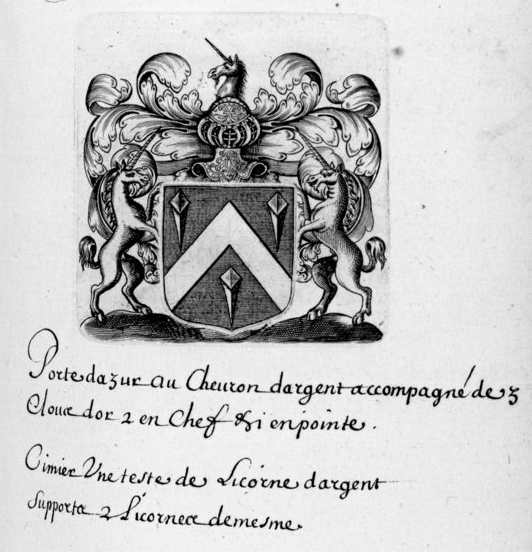 Porte dazur au Cheuron dargent accompagné de 3
Cloux dor 2 en Chef & i en pointe.
Cimier Vne teste de Licorne dargent
Supports 2 Licornes de mesme.